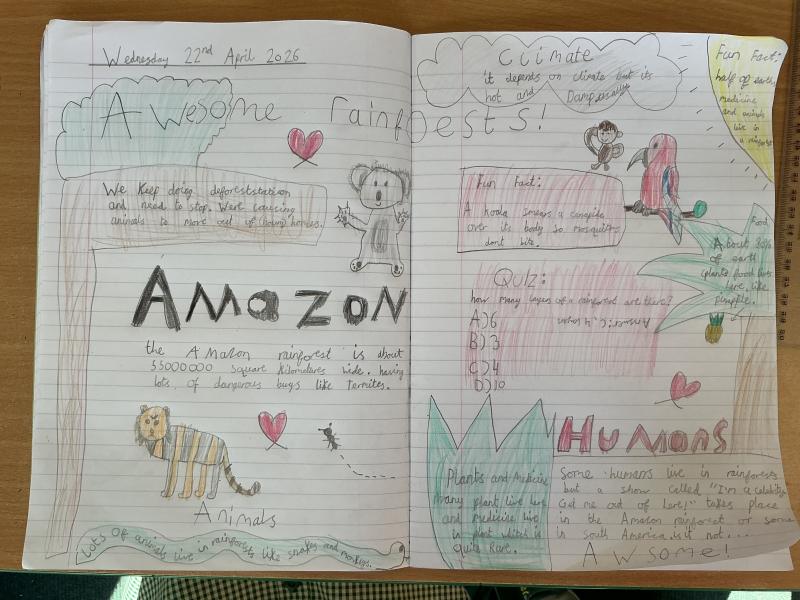 Wednesday 22nd April 2026
Awesome rainforests!
We Keep doing deforeststation
and need to stop. Were causing
animals to move out of thei homes.
AMAZON
the AMazon rainforest is about
55000000 square kilometeres wide. having
lots of dangerous bugs like termites.
Animals
Lots Of animals live in rainforests like snakes and monkeys.
Climate
it depends on climate but its
hot and Damp usually
Fun Fact:
half of earths
medicine
and animals
live in
a rainforest
Fun Fact:
A koala smears a
over its body so mosquitos
dont bite.
Food
About 80%
of earth
plants food
here, like
pinapple.
Quiz:
how many layers of a rainforest are there?
A)6
B)3
C)4
D)10
Answer: C, 4
HUMANS
Some humans live in rainforests
but a show called "I'm a celebrity
Get me out of here!" takes place
in the Amazon rainforest or some
in south America. is it not...
AWSome!
Plants and Medicine
many plant live here
and medicine live
in plant which is
quite Rare.